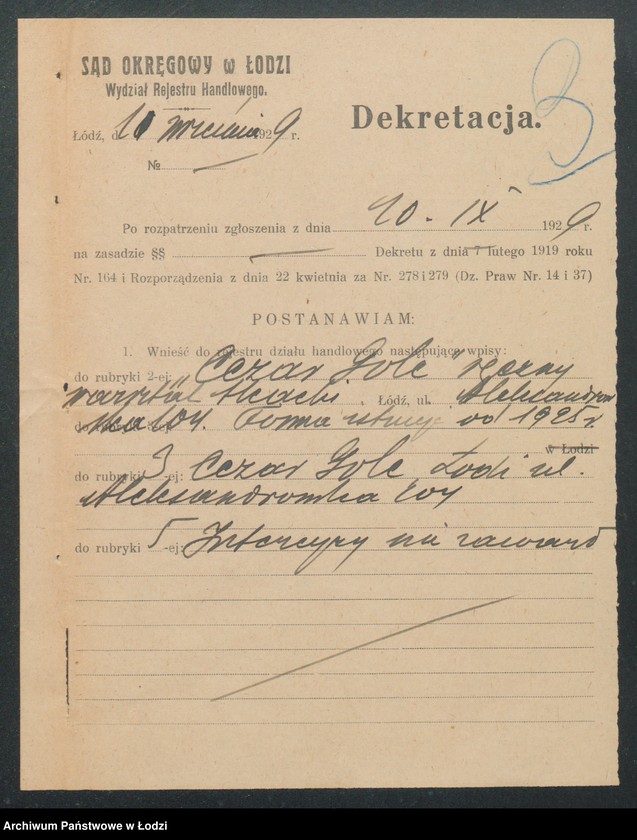 SĄD OKRĘGOWY w ŁODZI
Wydział Rejestru Handlowego.
3
Dekretacja.
Łódź, d. 10 września 1929 r.
№ —
Po rozpatrzeniu zgłoszenia z dnia 10. IX 1929 r.
na zasadzie §§ — Dekretu z dnia 7 lutego 1919 roku
Nr. 164 i Rozporządzenia z dnia 22 kwietnia za Nr. 278 i 279 (Dz. Praw Nr. 14 i 37)
POSTANAWIAM:
1. Wnieść do rejestru działu handlowego następujące wpisy:
do rubryki 2-ej: „Cezar Golc" ręczny
warsztat tkacki, Łódź, ul. Aleksandrow
ska 104. Firma istnieje od 1925 r
do rubryki
w Łodzi
do rubryki 3-ej: Cezar Golc Łódź ul.
Aleksandrowska 104
do rubryki 5-ej: Intercyzy nie zawarł
Archiwum Państwowe w Łodzi